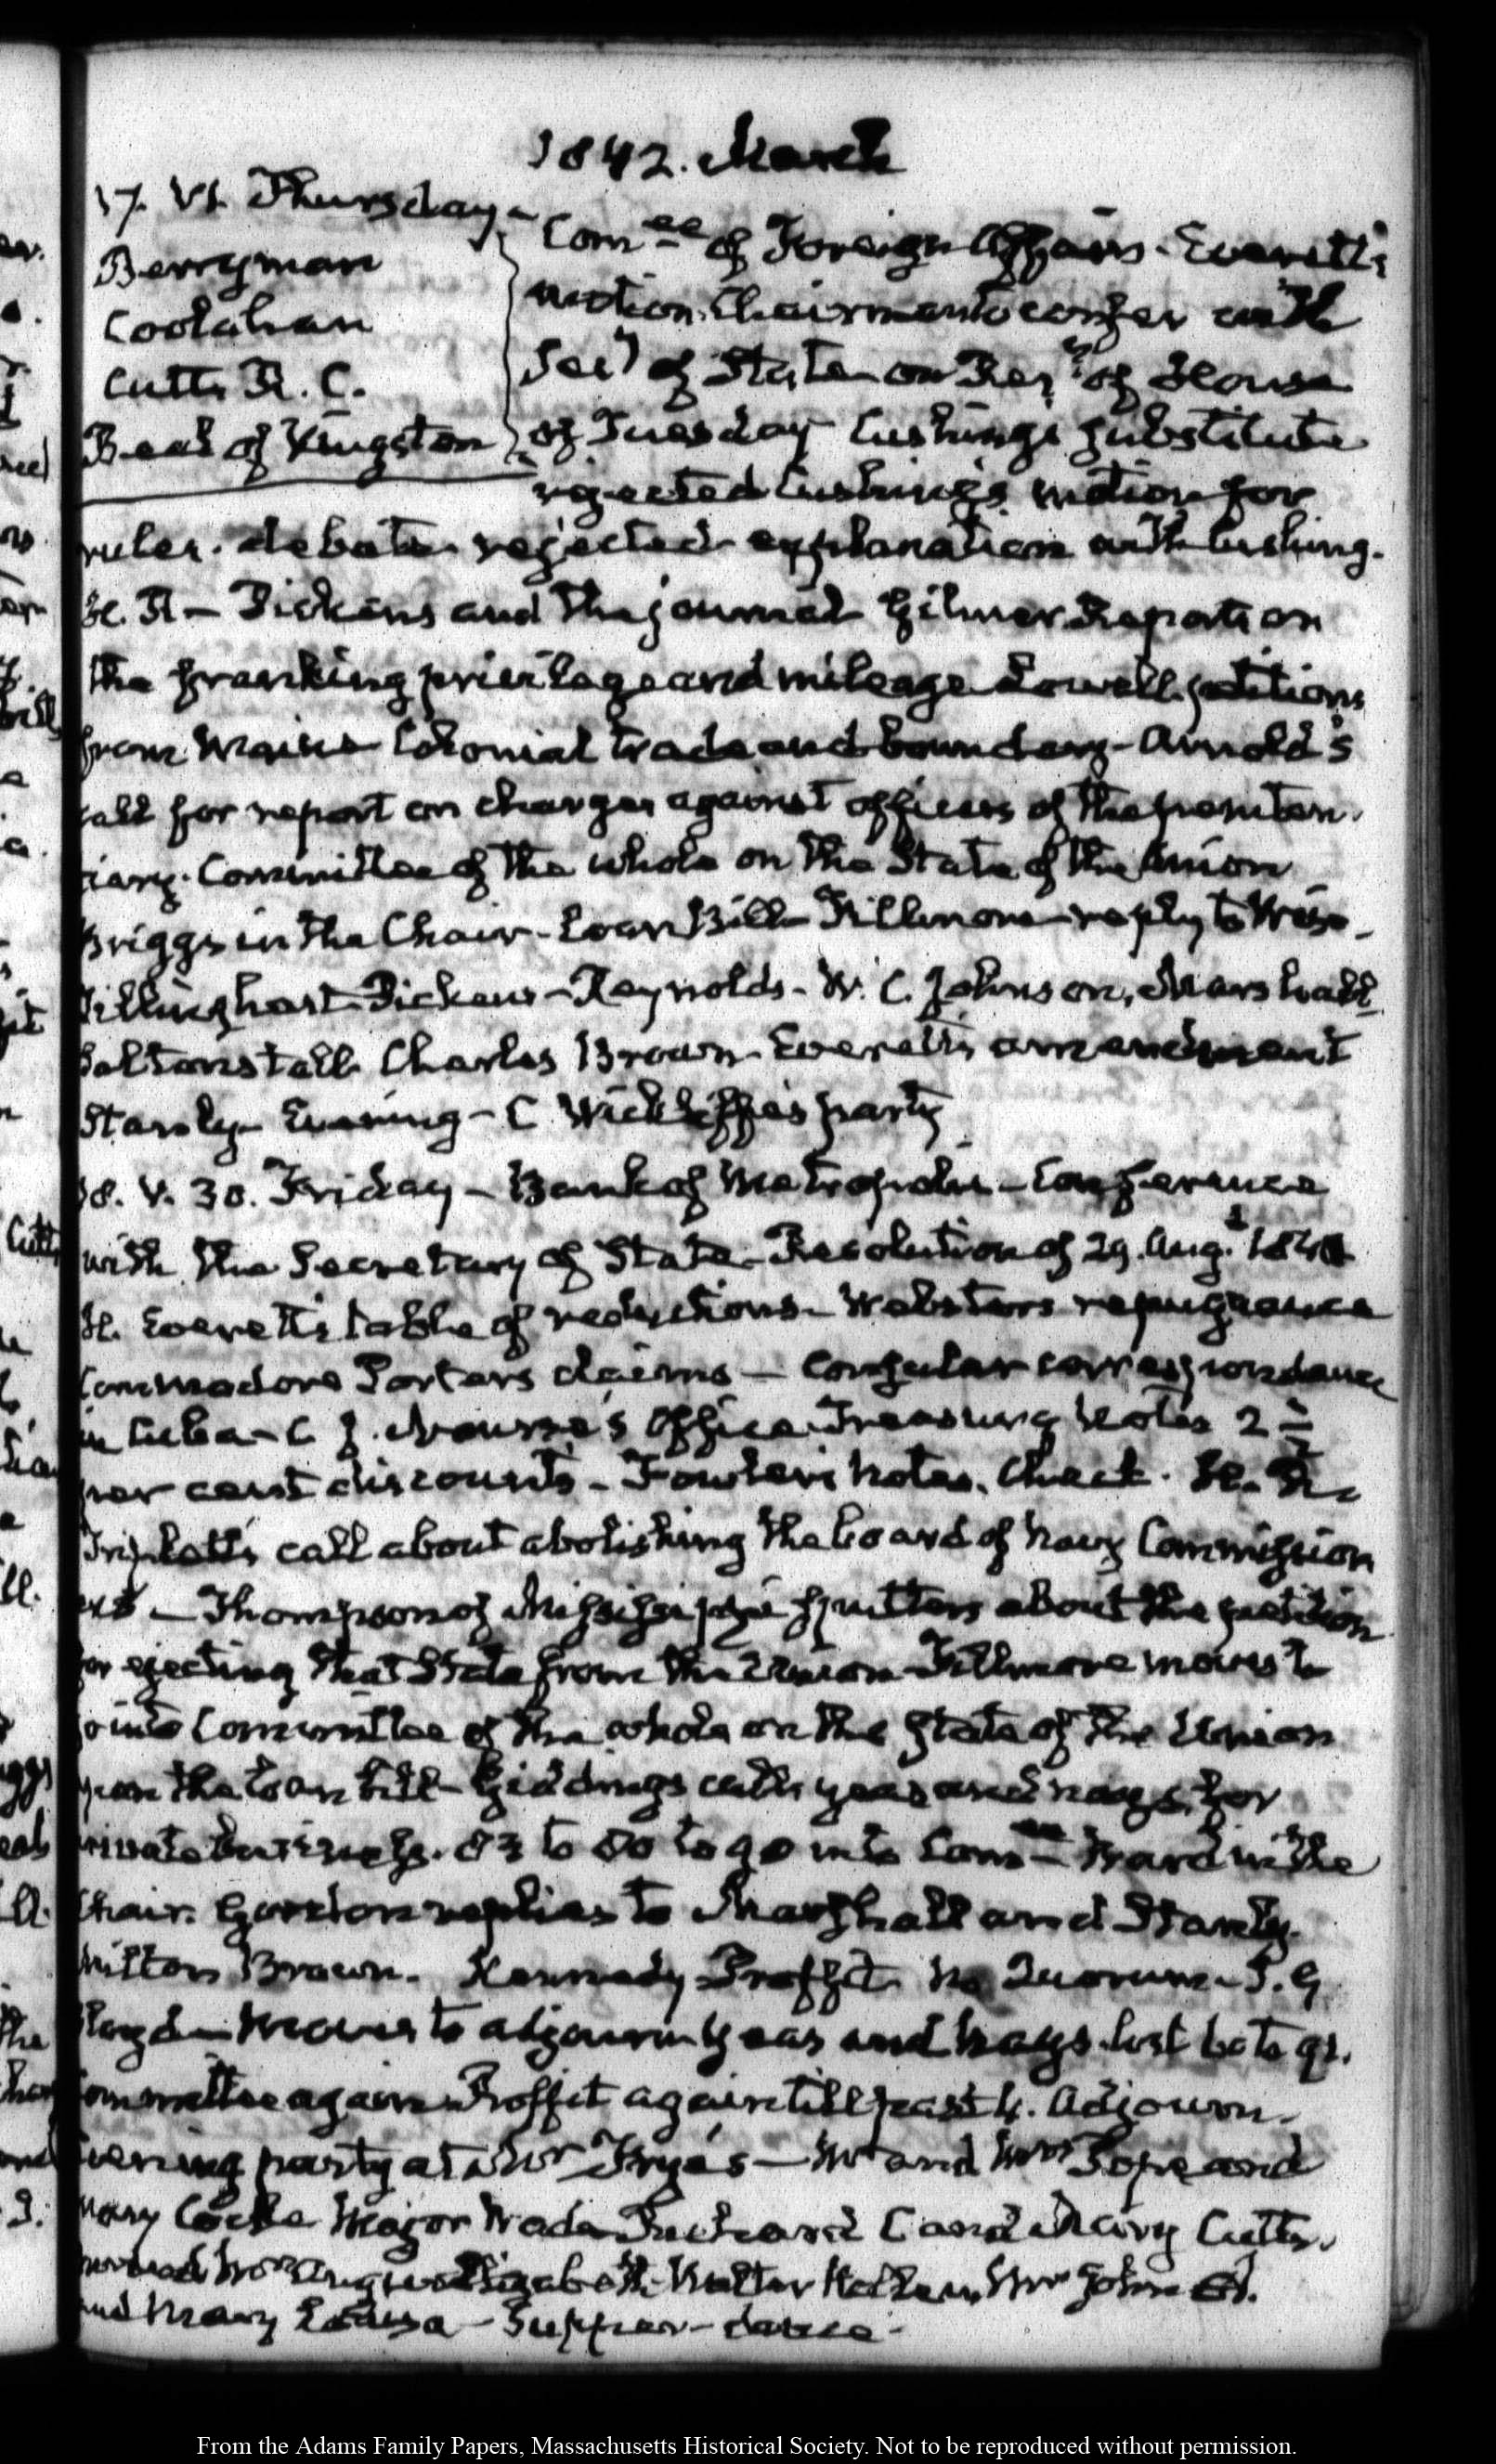 1842. March
17. VI. Thursday.
Berryman
Coolahan
Cutts R. C.
Beal of Kingston
Comee of Foreign Affairs. Everett's
motion, Chairman to confer with
Secy of State on Resn of House
of Tuesday Cushing's substitute
rejected Cushing's motion for
rules. debate rejected explanation with Cushing.
H. R — Pickens and the journal Gilmer Report on
the franking privilege and mileage Lowell petitions
from Maine Colonial trade and boundary — Arnold's
call for report on charges against officers of the peniten
tiary. Committee of the whole on the State of the Union
Briggs in the Chair — Loan Bill — Fillmore — reply to Wise —
Tillinghast Pickens — Reynolds — W. C. Johnson, Marshall
Saltonstall Charles Brown Everett's amendment
Stanly — Evening — C. Wickliffe's party
18. V. 30. Friday — Bank of Metropolis — Conference
with the Secretary of State — Resolution of 29. Aug. 1841
H. Everett's table of reductions — Websters repugnance
Commodore Porters claims — Consular correspondence
in Cuba — C. J. Nourse's Office Treasury Notes 2 1/2
per cent discounts — Fowler's Notes. Check. H. R.
Triplett's call about abolishing the board of Navy Commission
ers — Thompson of Mississippi sputters about the petition
for ejecting that State from the Union — Fillmore moves to
go into Committee of the whole on the State of the Union
upon the Loan bill — Giddings calls yeas and nays for
private business. 83 to 80 to go into Comee Ward in the
Chair. Gordon replies to Marshall and Stanly.
Milton Brown. Kennedy Proffit. No Quorum — J. G
Floyd — moves to adjourn yeas and nays lost 60 to 91.
Committee again Proffit again till past 4. Adjourn.
Evening party at Dr Frye's — Mr and Mrs Pope and
Mary Cocke Major Wade Richard C and Mary Cutts.
Mrs Angus Elizabeth Walter Hellen, Mrs John
and Mary Louisa — Supper — dance —
From the Adams Family Papers, Massachusetts Historical Society. Not to be reproduced without permission.